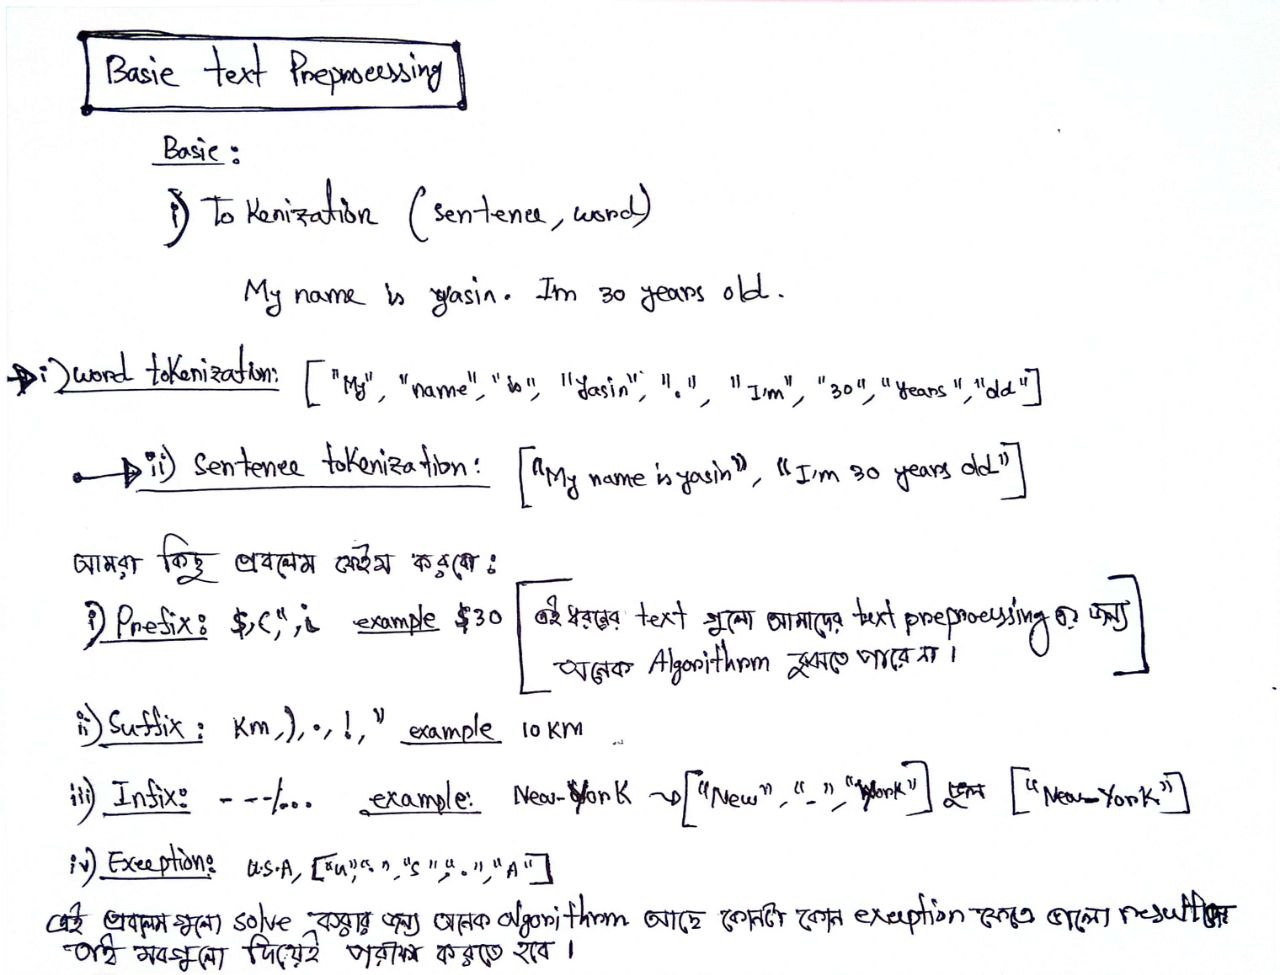 Basic text Preprocessing
Basic:
i) Tokenization (sentence, word)
My name is yasin. Im 30 years old.
i) word tokenization: ["My", "name", "is", "Yasin", ".", "I'm", "30", "Years", "old"]
ii) Sentence tokenization: ["My name is yasin", "I'm 30 years old"]
আমরা কিছু প্রবলেম ফেইস করবো:
i) Prefix: $,(,",¿ example $30 [এই ধরনের text গুলো আমাদের text preprocessing এর জন্য
অনেক Algorithm বুঝতে পারে না।]
ii) Suffix: Km,),.,!," example 10 KM
iii) Infix: - --/... example: New-York → ["New", "-", "York"] ভুল ["New-York"]
iv) Exception: U.S.A, ["U",".","S",".","A"]
এই প্রবলেম গুলো solve করার জন্য অনেক algorithm আছে কোনটা কোন exception ক্ষেত্রে ভালো result দেয়
তাই সবগুলো দিয়েই পরীক্ষা করতে হবে।